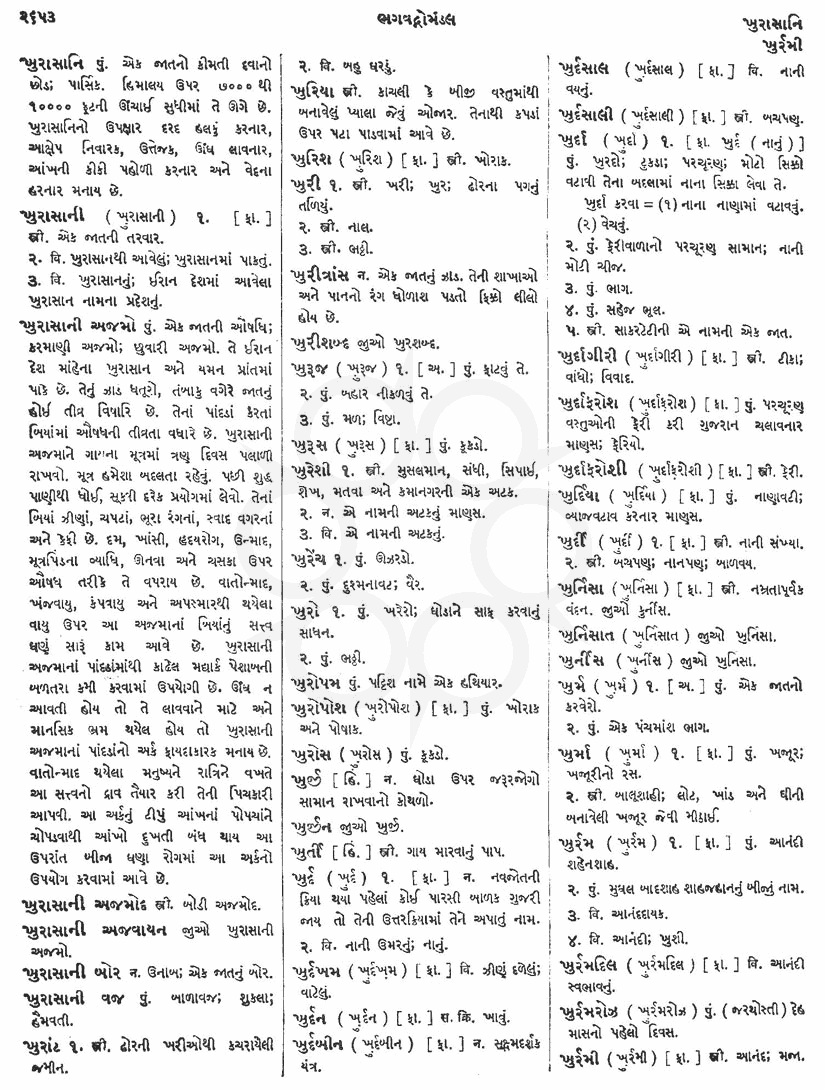 ૨૬૫૩
ભગવદ્ગોમંડલ
ખુરાસાનિ
ખુર્રમી
ખુરાસાનિ પું. એક જાતનો કીમતી દવાનો
છોડ; પાર્સિક. હિમાલય ઉપર ૭૦૦૦ થી
૧૦૦૦૦ ફૂટની ઊંચાઈ સુધીમાં તે ઊગે છે.
ખુરાસાનિનો ઉપક્ષાર દરદ હલકું કરનાર,
આક્ષેપ નિવારક, ઉત્તેજક, ઊંઘ લાવનાર,
આંખની કીકી પહોળી કરનાર અને વેદના
હરનાર મનાય છે.
ખુરાસાની (ખુરાસાની) ૧. [ ફા. ]
સ્ત્રી. એક જાતની તરવાર.
૨. વિ. ખુરાસાનથી આવેલું; ખુરાસાનમાં પાકતું.
૩. વિ. ખુરાસાનનું; ઈરાન દેશમાં આવેલા
ખુરાસાન નામના પ્રદેશનું.
ખુરાસાની અજમો પું. એક જાતની ઔષધિ;
કરમાણી અજમો; છુવારી અજમો. તે ઈરાન
દેશ માંહેના ખુરાસાન અને યમન પ્રાંતમાં
પાકે છે. તેનું ઝાડ ધતૂરો, તંબાકુ વગેરે જાતનું
હોઈ તીવ્ર વિષારિ છે. તેનાં પાંદડાં કરતાં
બિયાંમાં ઔષધની તીવ્રતા વધારે છે. ખુરાસાની
અજમાને ગાયના મૂત્રમાં ત્રણ દિવસ પલાળી
રાખવો. મૂત્ર હમેશા બદલતા રહેવું. પછી શુદ્ધ
પાણીથી ધોઈ, સૂકવી દરેક પ્રયોગમાં લેવો. તેનાં
બિયાં ઝીણાં, ચપટાં, ભૂરા રંગનાં, સ્વાદ વગરનાં
અને કેફી છે. દમ, ખાંસી, હૃદયરોગ, ઉન્માદ,
મૂત્રપિંડના વ્યાધિ, ઊનવા અને ચસકા ઉપર
ઔષધ તરીકે તે વપરાય છે. વાતોન્માદ,
ખંજવાયુ, કંપવાયુ અને અપસ્મારથી થયેલા
વાયુ ઉપર આ અજમાનાં બિયાંનું સત્ત્વ
ઘણું સારૂં કામ આવે છે. ખુરાસાની
અજમાનાં પાંદડાંમાંથી કાઢેલ મદ્યાર્ક પેશાબની
બળતરા કમી કરવામાં ઉપયોગી છે. ઊંઘ ન
આવતી હોય તો તે લાવવાને માટે અને
માનસિક ભ્રમ થયેલ હોય તો ખુરાસાની
અજમાનાં પાંદડાંનો અર્ક ફાયદાકારક મનાય છે.
વાતોન્માદ થયેલા મનુષ્યને રાત્રિને વખતે
આ સત્ત્વનો દ્રાવ તૈયાર કરી તેની પિચકારી
આપવી. આ અર્કનું ટીપું આંખનાં પોપચાંને
ચોપડવાથી આંખો દુખતી બંધ થાય આ
ઉપરાંત બીજા ઘણા રોગમાં આ અર્કનો
ઉપયોગ કરવામાં આવે છે.
ખુરાસાની અજમોદ સ્ત્રી. બોડી અજમોદ.
ખુરાસાની અજવાયન જુઓ ખુરાસાની
અજમો.
ખુરાસાની બોર ન. ઉનાબ; એક જાતનું બોર.
ખુરાસાની વજ પું. બાળાવજ; શુકલા;
હૈમવતી.
ખુરાંટ ૧. સ્ત્રી. ઢોરની ખરીઓથી કચરાયેલી
જમીન.
૨. વિ. બહુ ઘરડું.
ખુરિયા સ્ત્રી. કાચલી કે બીજી વસ્તુમાંથી
બનાવેલું પ્યાલા જેવું ઓજાર. તેનાથી કપડાં
ઉપર પટા પાડવામાં આવે છે.
ખુરિશ (ખુરિશ) [ ફા. ] સ્ત્રી. ખોરાક.
ખુરી ૧. સ્ત્રી. ખરી; ખુર; ઢોરના પગનું
તળિયું.
૨. સ્ત્રી. નાલ.
૩. સ્ત્રી. ભઠ્ઠી.
ખુરીત્રાંસ ન. એક જાતનું ઝાડ. તેની શાખાઓ
અને પાનનો રંગ ધોળાશ પડતો ફિક્કો લીલો
હોય છે.
ખુરીશબ્દ જુઓ ખુરશબ્દ.
ખુરૂજ (ખુરૂજ) ૧. [ અ. ] પું. ફાટવું તે.
૨. પું. બહાર નીકળવું તે.
૩. પું. મળ; વિષ્ટા.
ખુરૂસ (ખુરૂસ) [ ફા. ] પું. કૂકડો.
ખુરેશી ૧. સ્ત્રી. મુસલમાન, સંધી, સિપાઈ,
શેખ, મતવા અને કમાનગરની એક અટક.
૨. ન. એ નામની અટકનું માણસ.
૩. વિ. એ નામની અટકનું.
ખુરેંચ ૧. પું. ઊઝરડો.
૨. પું. દુશ્મનાવટ; વૈર.
ખુરો ૧. પું. ખરેરો; ઘોડાને સાફ કરવાનું
સાધન.
૨. પું. ભઠ્ઠી.
ખુરોપમ પું. પટ્ટિશ નામે એક હથિયાર.
ખુરોપોશ (ખુરોપોશ) [ ફા. ] પું. ખોરાક
અને પોષાક.
ખુરોસ (ખુરોસ) પું. કૂકડો.
ખુર્જી [ હિં. ] ન. ઘોડા ઉપર જરૂરજોગો
સામાન રાખવાનો કોથળો.
ખુર્જીન જુઓ ખુર્જી.
ખુર્તી [ હિં. ] સ્ત્રી. ગાય મારવાનું પાપ.
ખુર્દ (ખુર્દ) ૧. [ ફા. ] ન. નવજોતની
ક્રિયા થયા પહેલાં કોઈ પારસી બાળક ગુજરી
જાય તો તેની ઉત્તરક્રિયામાં તેને અપાતું નામ.
૨. વિ. નાની ઉમરનું; નાનું.
ખુર્દખમ (ખુર્દખમ) [ ફા. ] વિ. ઝીણું દળેલું;
વાટેલું.
ખુર્દન (ખુર્દન) [ ફા. ] સ. ક્રિ. ખાવું.
ખુર્દબીન (ખુર્દબીન) [ ફા. ] ન. સૂક્ષ્મદર્શક
યંત્ર.
ખુર્દસાલ (ખુર્દસાલ) [ ફા. ] વિ. નાની
વયનું.
ખુર્દસાલી (ખુર્દસાલી) [ ફા. ] સ્ત્રી. બચપણ.
ખુર્દા (ખુર્દા) ૧. [ ફા. ખુર્દ (નાનું) ]
પું. ખુરદો; ટુકડા; પરચૂરણ; મોટો સિક્કો
વટાવી તેના બદલામાં નાના સિક્કા લેવા તે.
ખુર્દા કરવા = (૧) નાના નાણામાં વટાવવું.
(૨) વેચવું.
૨. પું. ફેરીવાળાનો પરચૂરણ સામાન; નાની
મોટી ચીજ.
૩. પું. ભાગ.
૪. પું. સહેજ ભૂલ.
૫. સ્ત્રી. સાકરટેટીની એ નામની એક જાત.
ખુર્દાગીરી (ખુર્દાગીરી) [ ફા. ] સ્ત્રી. ટીકા;
વાંધો; વિવાદ.
ખુર્દાફરોશ (ખુર્દાફરોશ) [ ફા. ] પું. પરચૂરણ
વસ્તુઓની ફેરી કરી ગુજરાન ચલાવનાર
માણસ; ફેરિયો.
ખુર્દાફરોશી (ખુર્દાફરોશી) [ ફા. ] સ્ત્રી. ફેરી.
ખુર્દિયા (ખુર્દિયા) [ ફા. ] પું. નાણાવટી;
વ્યાજવટાવ કરનાર માણસ.
ખુર્દી (ખુર્દી) ૧. [ ફા. ] સ્ત્રી. નાની સંખ્યા.
૨. સ્ત્રી. બચપણ; નાનપણ; બાળવય.
ખુર્નિસા (ખુર્નિસા) [ ફા. ] સ્ત્રી. નમ્રતાપૂર્વક
વંદન. જુઓ કુર્નીસ.
ખુર્નિસાત (ખુર્નિસાત) જુઓ ખુર્નિસા.
ખુર્નીસ (ખુર્નીસ) જુઓ ખુર્નિસા.
ખુર્મ (ખુર્મ) ૧. [ અ. ] પું. એક જાતનો
કરવેરો.
૨. પું. એક પંચમાંશ ભાગ.
ખુર્મા (ખુર્મા) ૧. [ ફા. ] પું. ખજૂર;
ખજૂરીનો રસ.
૨. સ્ત્રી. બાલૂશાહી; લોટ, ખાંડ અને ઘીની
બનાવેલી ખજૂર જેવી મીઠાઈ.
ખુર્રમ (ખુર્રમ) ૧. [ ફા. ] પું. આનંદી
શહેનશાહ.
૨. પું. મુઘલ બાદશાહ શાહજહાનનું બીજું નામ.
૩. વિ. આનંદદાયક.
૪. વિ. આનંદી; ખુશી.
ખુર્રમદિલ (ખુર્રમદિલ) [ ફા. ] વિ. આનંદી
સ્વભાવનું.
ખુર્રમરોઝ (ખુર્રમરોઝ) પું. (જરથોસ્તી) દેહ
માસનો પહેલો દિવસ.
ખુર્રમી (ખુર્રમી) [ ફા. ] સ્ત્રી. આનંદ; મજા.